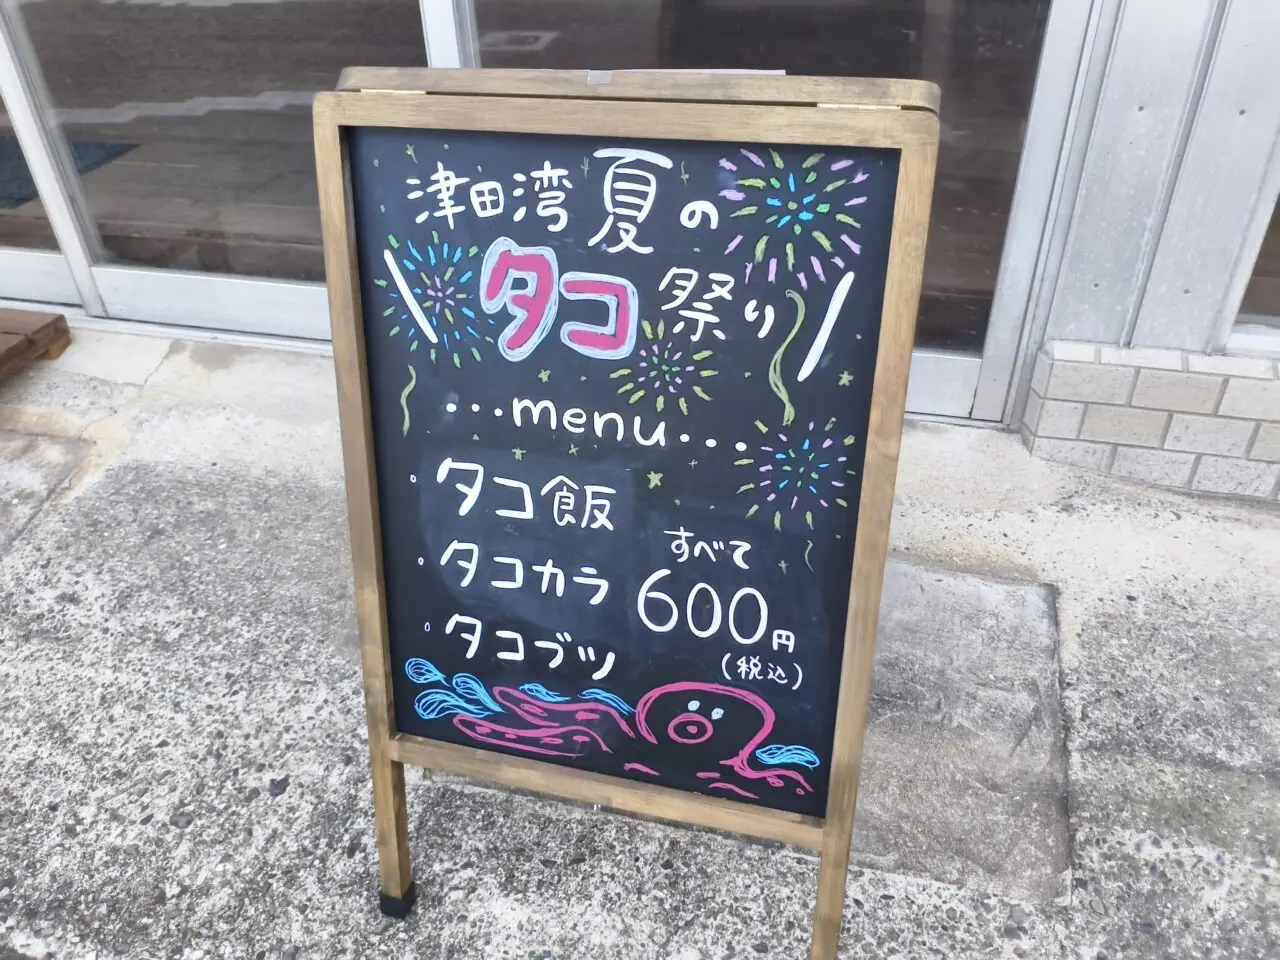 津田湾 夏の
\ タコ 祭り /
...menu...
・タコ飯
・タコカラ
・タコブツ
すべて
600円
(税込)